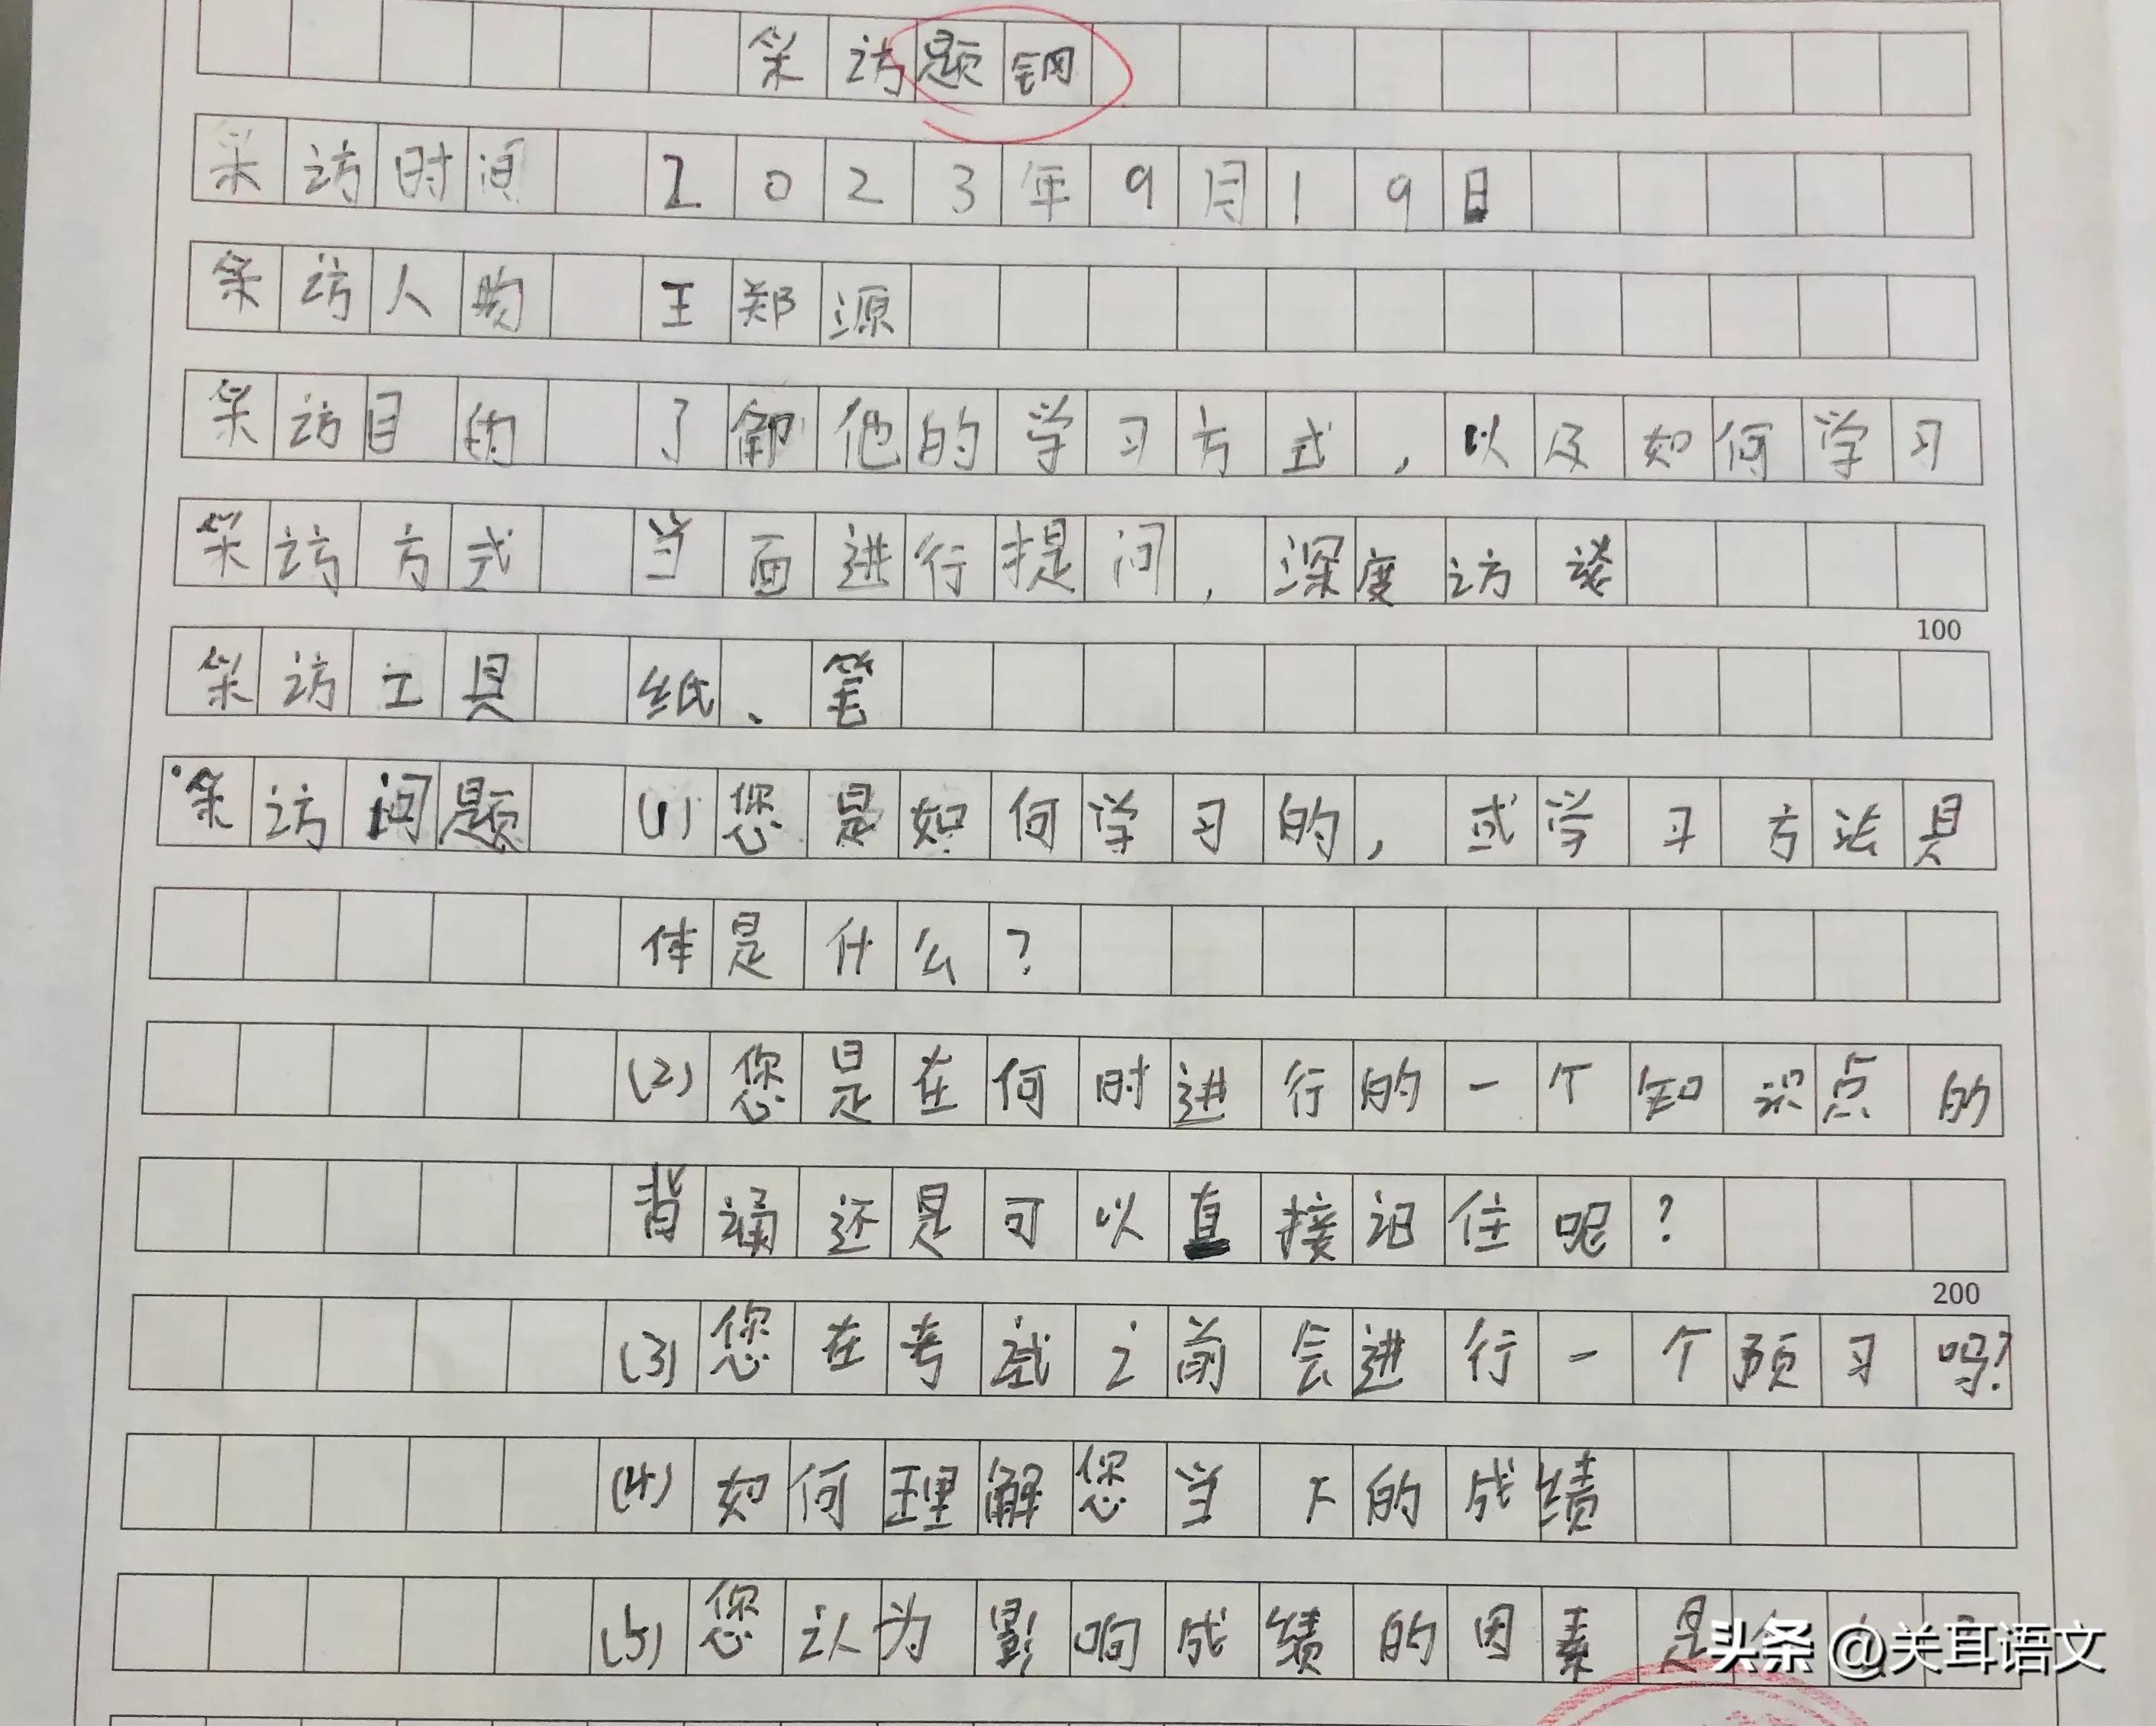 采访题钢
采访时间 2023年9月19日
采访人物 王郑源
采访目的 了解他的学习方式，以及如何学习
采访方式 当面进行提问，深度访谈
100
采访工具 纸、笔
采访问题 (1)您是如何学习的，或学习方法具
体是什么？
(2)您是在何时进行的一个知识点的
背诵还是可以直接记住呢？
200
(3)您在考试之前会进行一个预习吗？
(4)如何理解您当下的成绩
(5)您认为影响成绩的因素是
头条 @关耳语文